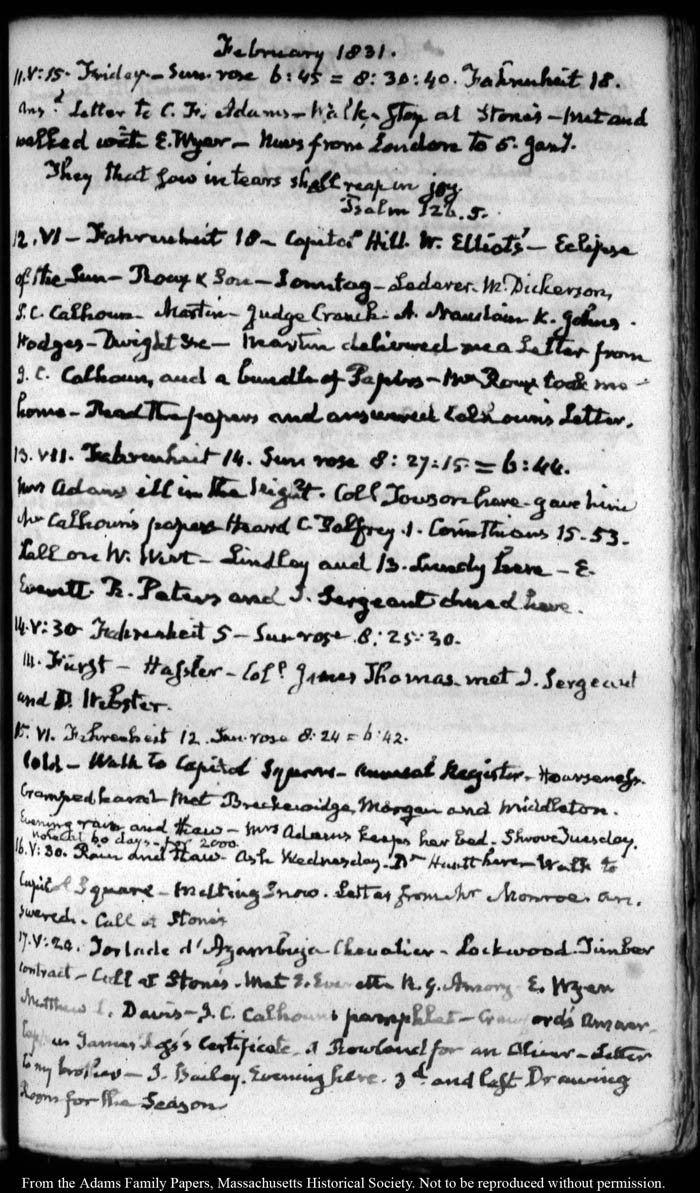 February 1831.
11. V:15. Friday— Sun rose 6:45 = 8:30:40. Fahrenheit 18.
Ans.d Letter to C. F. Adams— Walk— Stop at Stone's— met and
walked with E. Wyer— News from London to 5. Jany.
They that sow in tears shall reap in joy
Psalm 126. 5.
12. VI— Fahrenheit 18— Capitol Hill. W. Elliot's— Eclipse
of the Sun— Roux & Son— Sonntag— Lederer. M. Dickerson,
J. C. Calhoun— Martin— Judge Cranch— A. Naudain K. Johns.
Hodges— Dwight — Martin delivered me a Letter from
J. C. Calhoun, and a bundle of Papers— Mr Roux took me
home— Read the papers and answered Calhoun's Letter.
13. VII. Fahrenheit 14. Sun rose 8:27:15 = 6:44.
Mrs Adams ill in the Night. Coll Towson here— gave him
Mr Calhoun's papers Heard C Palfrey. 1. Corinthians 15–53.
Call on W. Wirt— Lindley and B. Lundy here— E.
Everett R. Peters and J. Sergeant dined here.
14. V:30 Fahrenheit 5— Sun rose 8:25:30.
M. Fürst— Hassler— Coll James Thomas— met J. Sergeant
and D. Webster.
15. VI. Fahrenheit 12. Sun rose 8:24 = 6:42.
Cold— Walk to Capitol Square— Annual Register— Hoarseness.
Cramped hand— Met Breckenridge, Morgan and Middleton.
Evening rain and thaw— Mrs Adams keeps her bed. Shrove Tuesday.
60 days— for 2000.
16. V:30. Rain and thaw— Ash Wednesday. Dr Huntt here— Walk to
Capitol Square— Melting Snow. Letter from Mr Monroe an-
swered. Call at Stone's
17. V:20. Torlade d'Azambuja Chevalier— Lockwood. Timber
contract— Call at Stone's. Met E. Everett K. G. Amory— E. Wyer
Matthew L. Davis— J. C. Calhoun's pamphlet— Crawford's Answer—
James 's Certificate. J Rowland for an Oliver— Letter
to my brother— J. Bailey. Evening here. 3d and last Drawing
Room for the Season
From the Adams Family Papers, Massachusetts Historical Society. Not to be reproduced without permission.